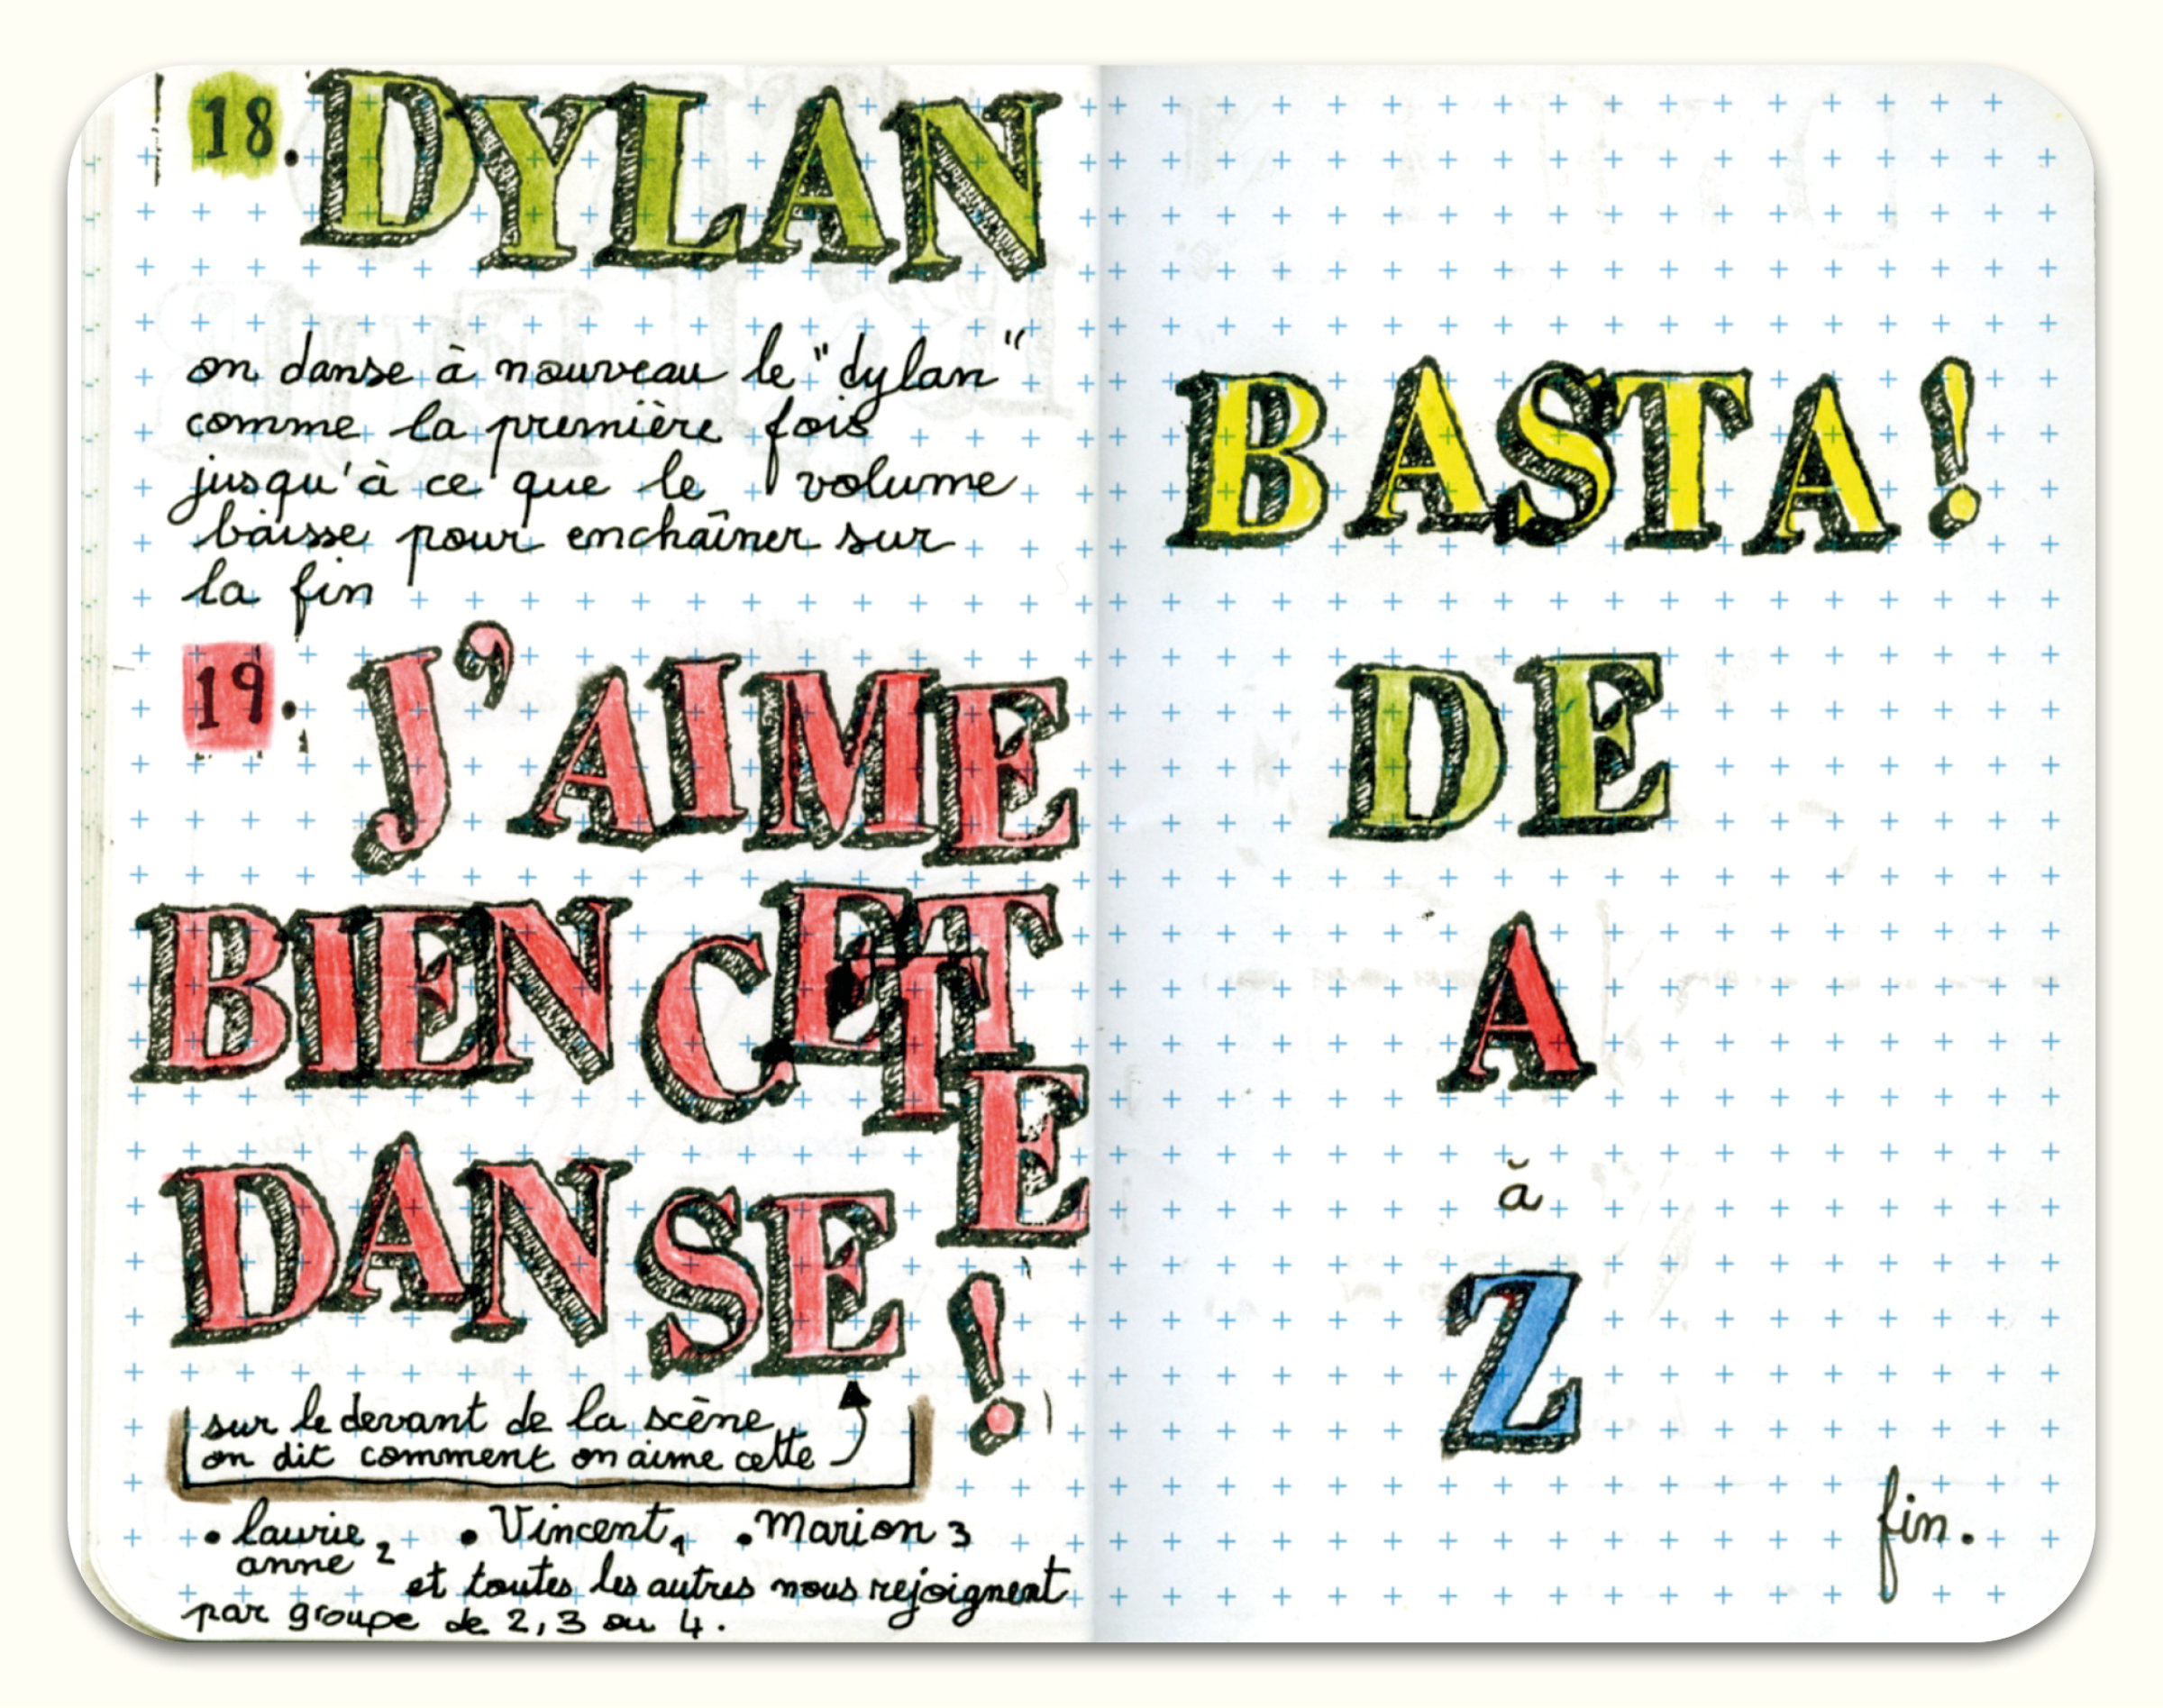 18. DYLAN
on danse à nouveau le "dylan"
comme la première fois
jusqu'à ce que le volume
baisse pour enchaîner sur
la fin
19. J'AIME
BIEN CETTE
DANSE !
sur le devant de la scène
on dit comment on aime cette
• laurie anne 2 • Vincent 1 • Marion 3
et toutes les autres nous rejoignent
par groupe de 2, 3 ou 4.
BASTA !
DE
A
à
Z
fin.